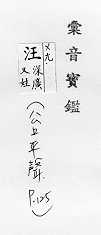 彙音寶鑑
ㄨ九·
汪 深廣
又姓
(公上平聲)
P.125